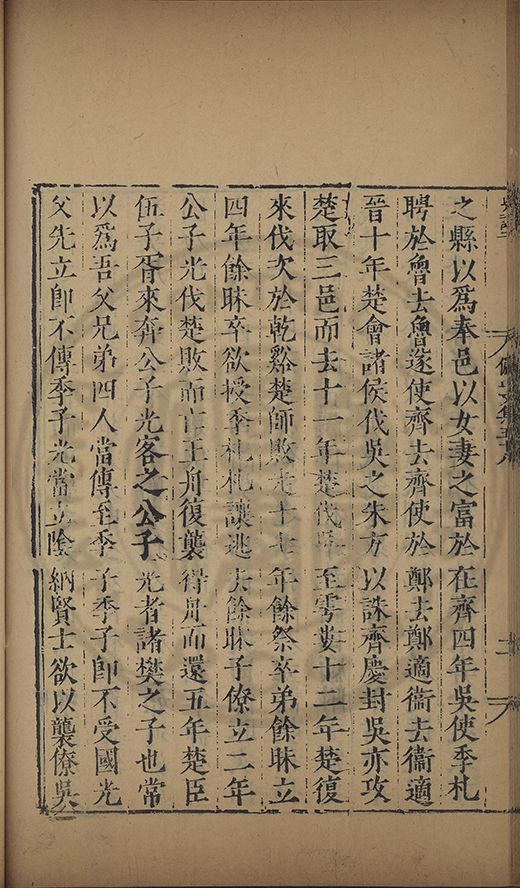 之縣以爲奉邑以女妻之富於在齊四年吳使季札
聘於魯去魯遂使齊去齊使於鄭去鄭適衞去衞適
晉十年楚會諸侯伐吳之朱方以誅齊慶封吳亦攻
楚取三邑而去十一年楚伐吳至雩婁十二年楚復
來伐次於乾谿楚師敗走十七年餘祭卒弟餘眛立
四年餘眛卒欲授季札札讓逃去餘眛子僚立二年
公子光伐楚敗而亡王舟復襲得舟而還五年楚臣
伍子胥來奔公子光客之公子光者諸樊之子也常
以爲吾父兄弟四人當傳至季子季子卽不受國光
父先立卽不傳季子光當立陰納賢士欲以襲僚吳